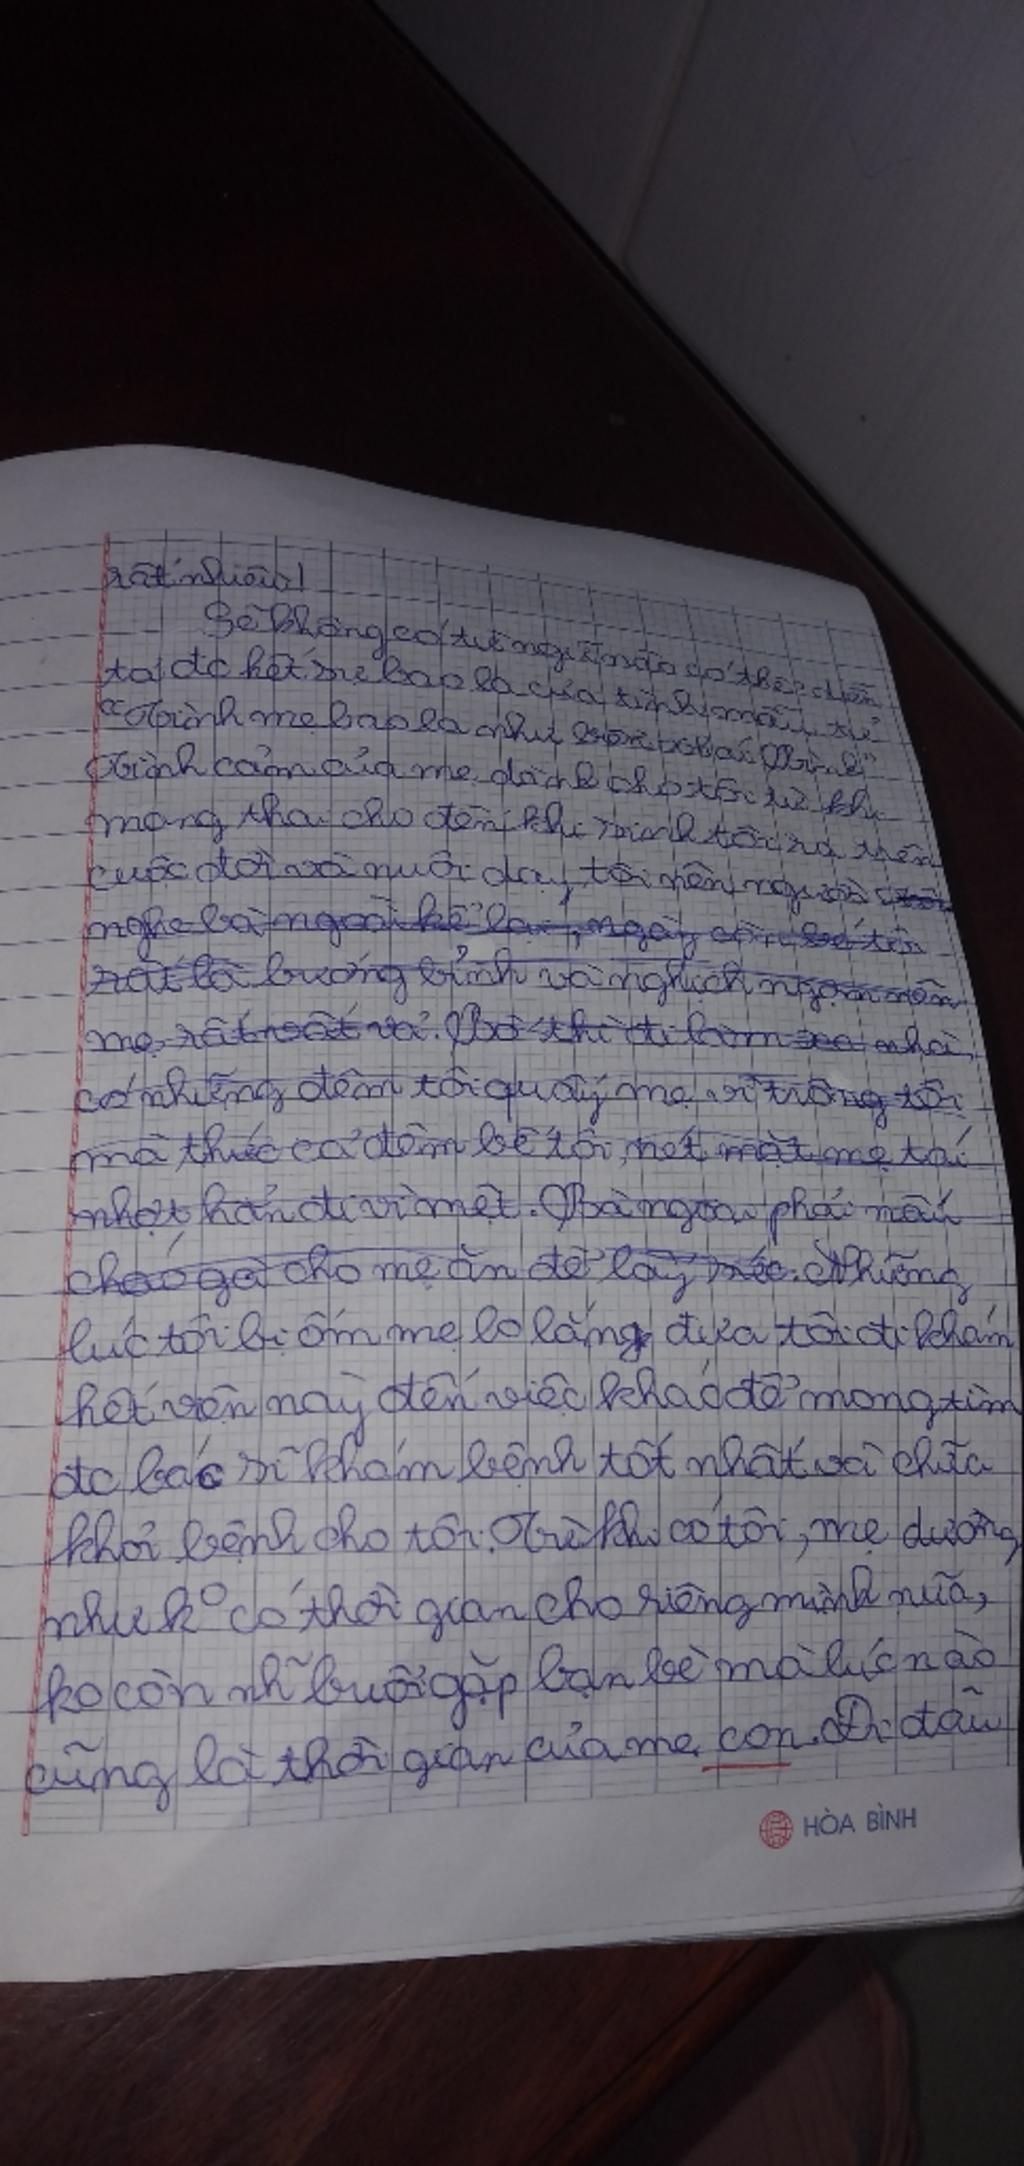 rất nhiều!
Sẽ không có từ ngữ nào có thể diễn
tả đc hết sự bao la của tình mẫu tử
"Tình mẹ bao la như biển Thái Bình"
Tình cảm của mẹ dành cho tôi từ khi
mang thai cho đến khi sinh tôi ra trên
cuộc đời và nuôi dạy tôi nên người
nghe bà ngoài kể lại, ngày còn bé tôi
rất là bướng bỉnh và nghịch ngợm nên
mẹ rất vất vả. Bố thì đi làm xa nhà,
có những đêm tôi quấy mẹ vì trông tôi
mà thức cả đêm bế tôi, nét mặt mẹ tái
nhợt hẳn đi vì mệt. Bà ngoại phải nấu
cháo gà cho mẹ ăn để lấy sức. Những
lúc tôi bị ốm mẹ lo lắng, đưa tôi đi khám
hết viện này đến việc khác để mong tìm
đc bác sĩ khám bệnh tốt nhất và chữa
khỏi bệnh cho tôi. Từ khi có tôi, mẹ dường
như k⁰ có thời gian cho riêng mình nữa,
ko còn nh~ buổi gặp bạn bè mà lúc nào
cũng là thời gian của mẹ con. Đi đâu
HÒA BÌNH